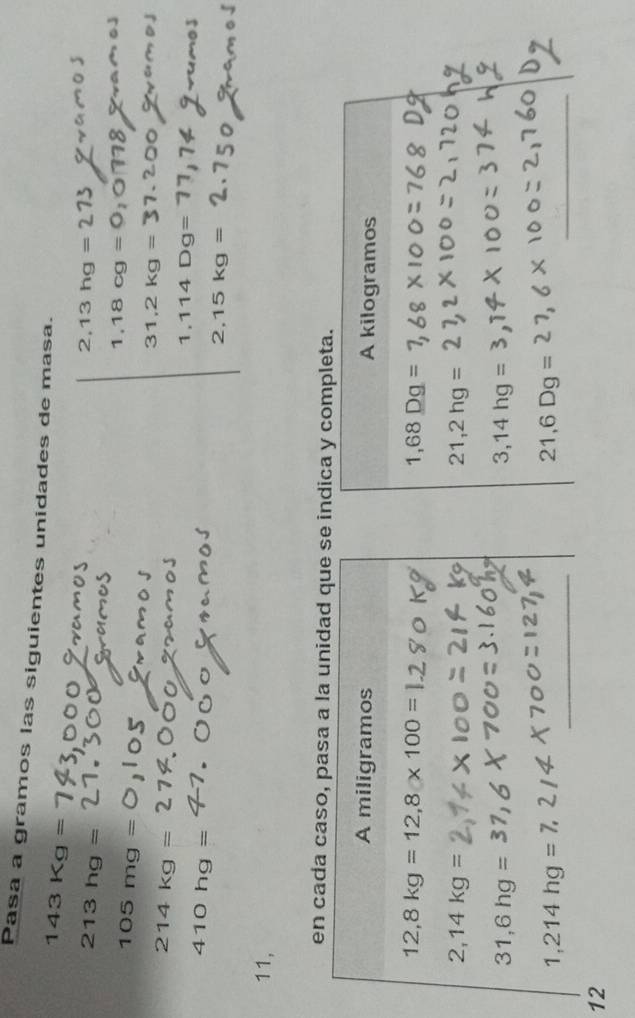 Pasa a gramos las siguientes unidades de masa.
143 Kg = 743,000 gramos
213 hg = 21.300 gramos
105 mg = 0,105 gramos
214 kg = 214.000 gramos
410 hg = 41.000 gramos
2,13 hg = 213 gramos
1,18 cg = 0,0118 gramos
31,2 kg = 31.200 gramos
1,114 Dg = 11,14 gramos
2,15 kg = 2.150 gramos
11,
en cada caso, pasa a la unidad que se indica y completa.
A miligramos
12,8 kg = 12,8 x 100 = 1.280 Kg
2,14 kg = 2,14 x 100 = 214 Kg
31,6 hg = 31,6 x 100 = 3.160 hg
1,214 hg = 1.214 x 100 = 121,4
A kilogramos
1,68 Dg = 1,68 x 100 = 168 Dg
21,2 hg = 21,2 x 100 = 2,120 hg
3,14 hg = 3,14 x 100 = 314 hg
21,6 Dg = 21,6 x 100 = 2,160 Dg
12